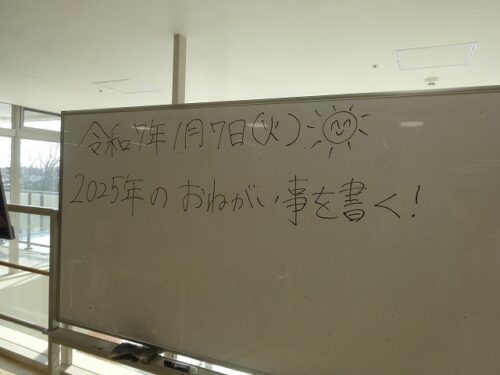 令和7年1月7日(火)
2025年のおねがい事を書く!